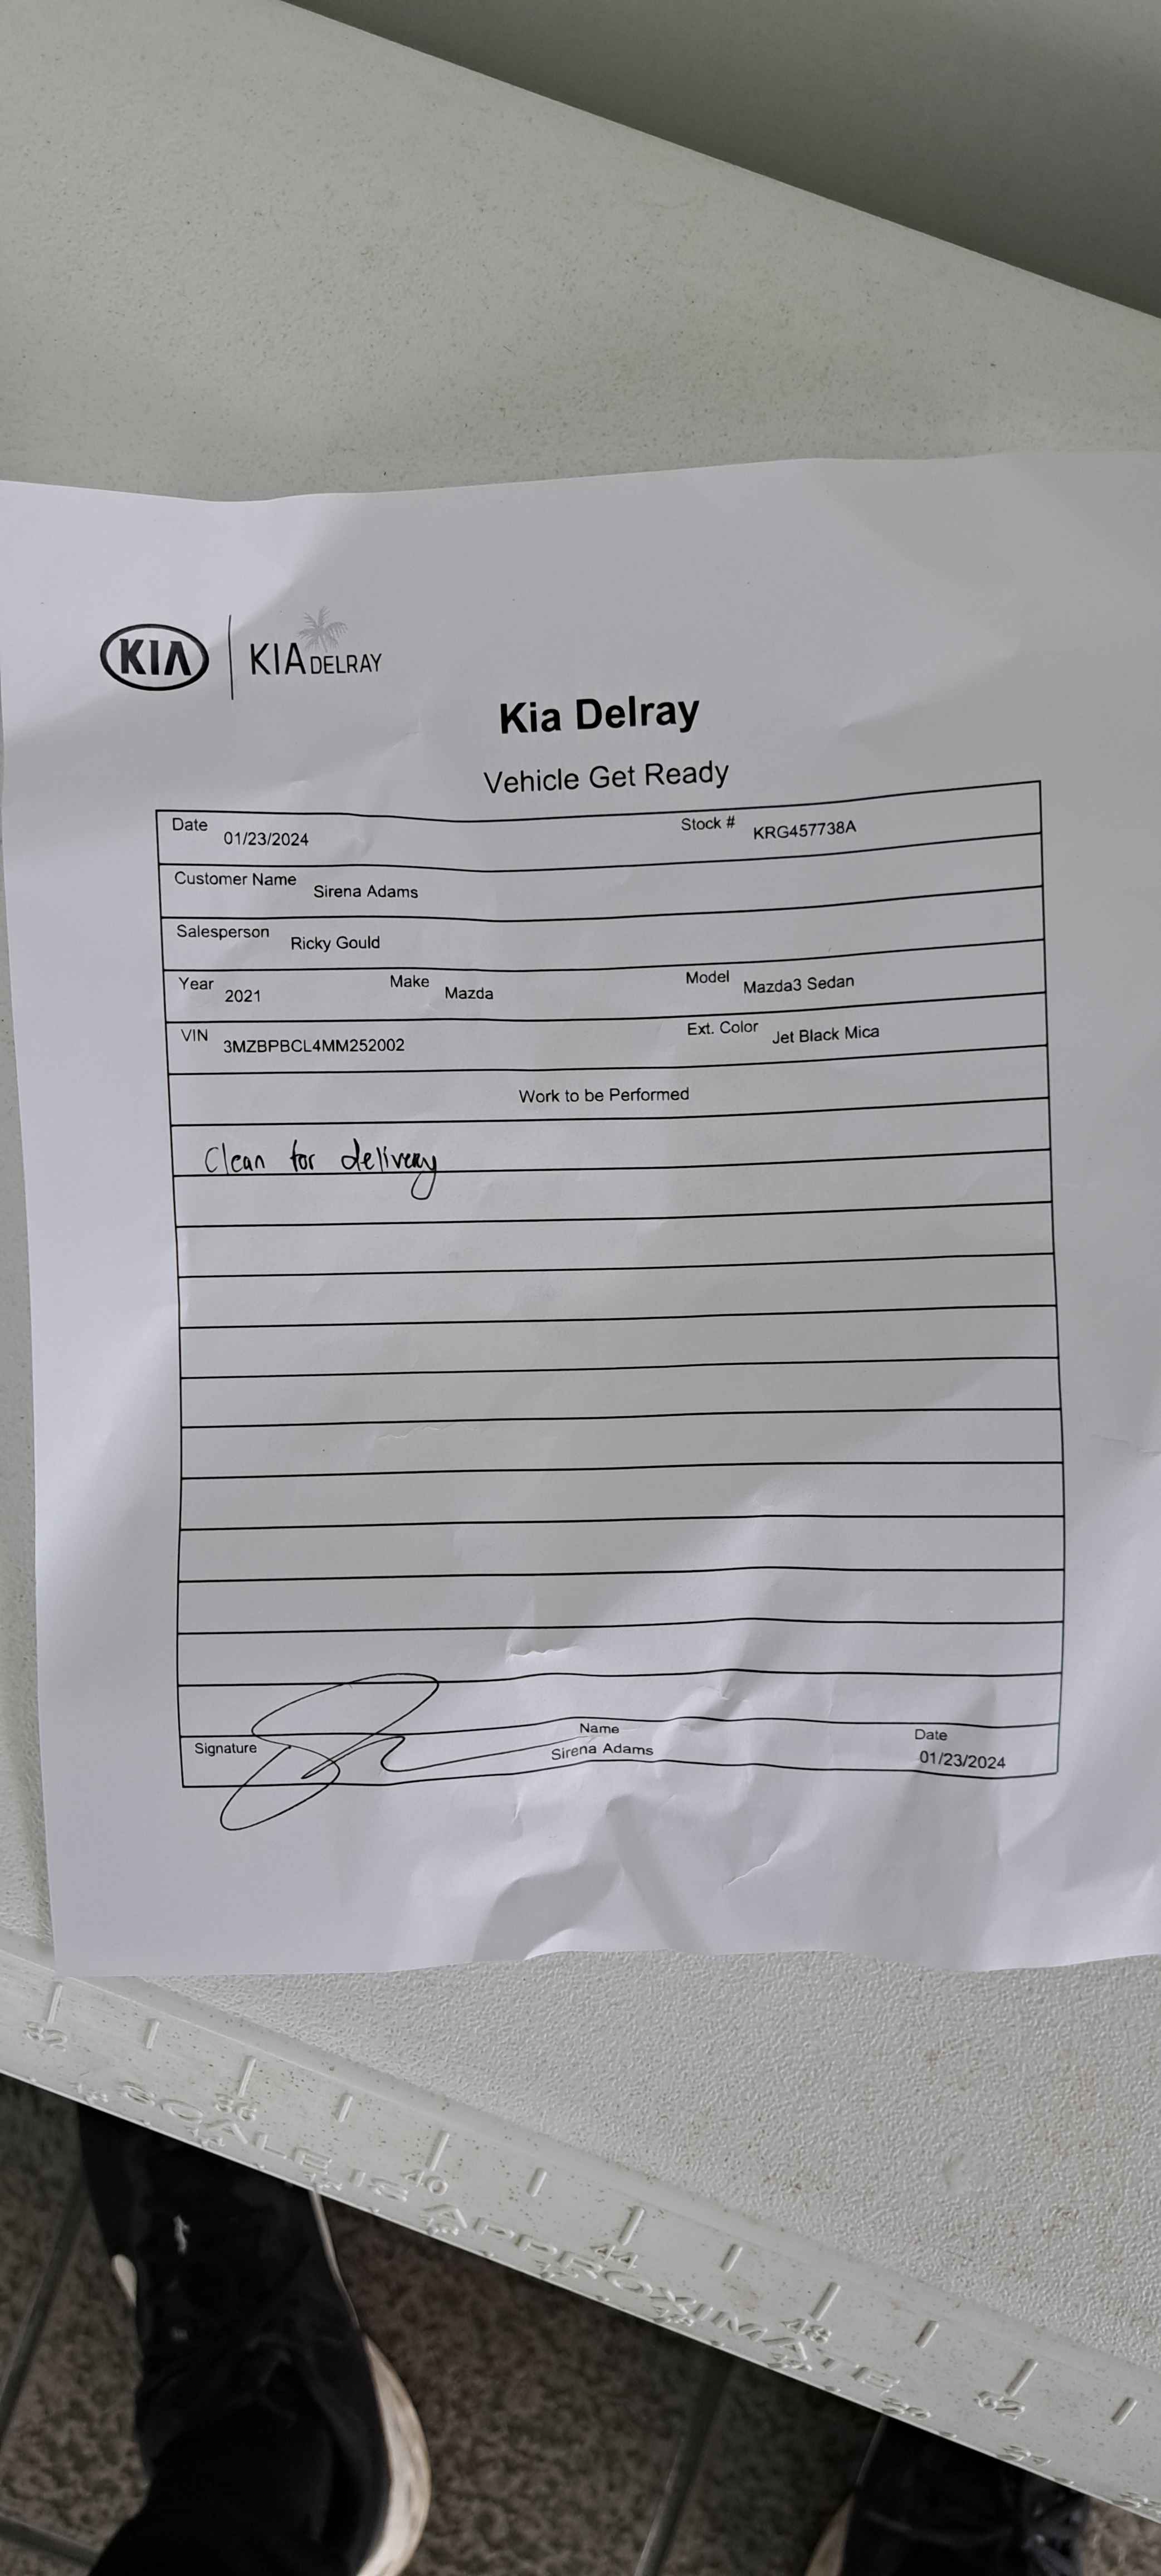 KIA KIA DELRAY
Kia Delray
Vehicle Get Ready
Date 01/23/2024 Stock # KRG457738A
Customer Name Sirena Adams
Salesperson Ricky Gould
Year 2021 Make Mazda Model Mazda3 Sedan
VIN 3MZBPBCL4MM252002 Ext. Color Jet Black Mica
Work to be Performed
Clean for delivery
Signature Name Sirena Adams Date 01/23/2024
32 36 40 44 48 52
SCALE IS APPROXIMATE